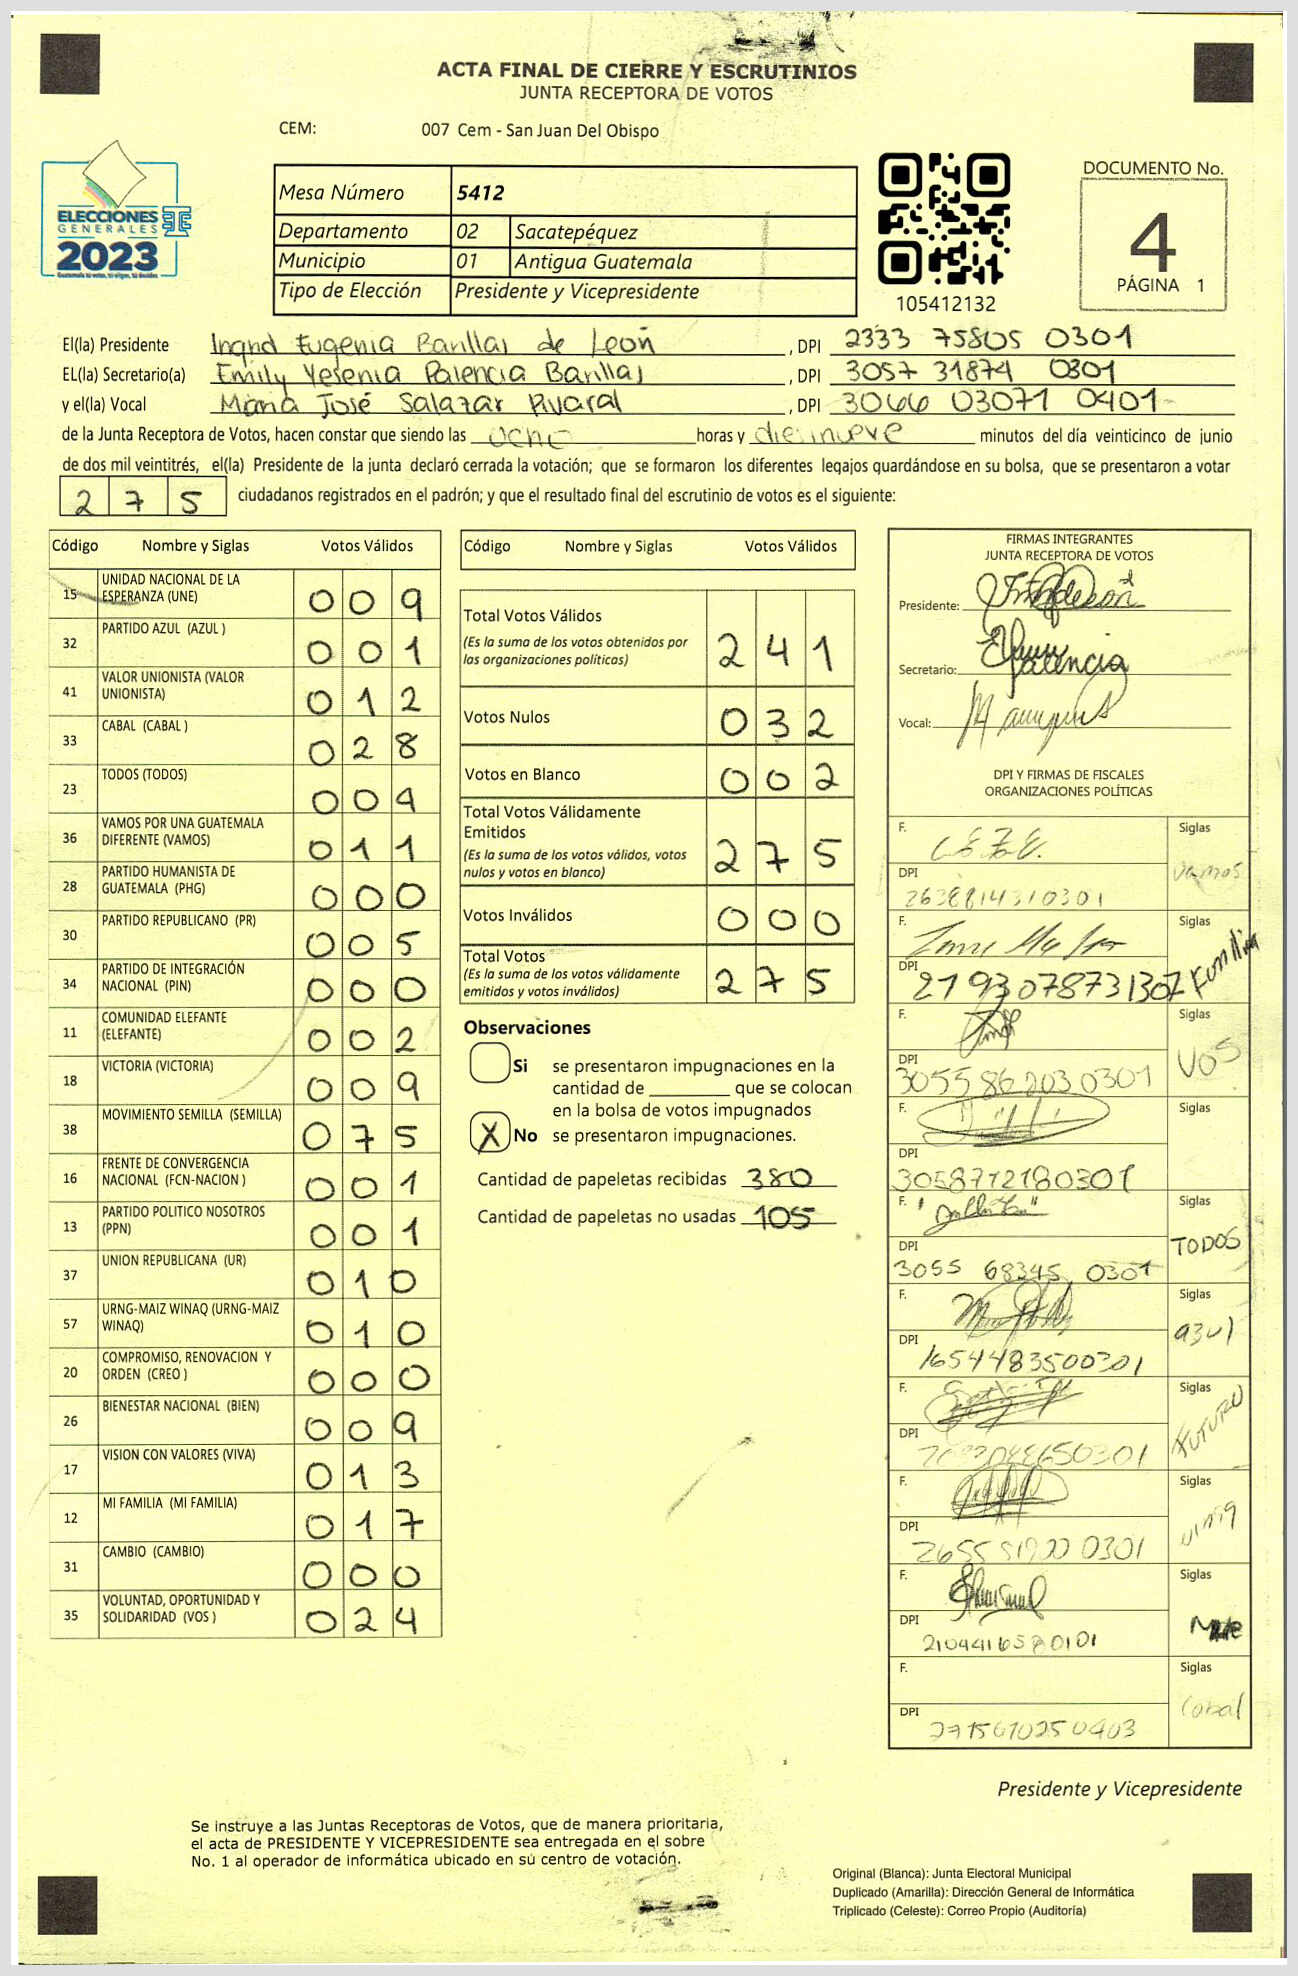 ACTA FINAL DE CIERRE Y ESCRUTINIOS
JUNTA RECEPTORA DE VOTOS
CEM: 007 Cem - San Juan Del Obispo
ELECCIONES
GENERALES
2023
Mesa Número 5412
Departamento 02 Sacatepéquez
Municipio 01 Antigua Guatemala
Tipo de Elección Presidente y Vicepresidente
105412132
DOCUMENTO No.
4
PÁGINA 1
El(la) Presidente Ingrid Eugenia Barillas de León , DPI 2333 75805 0301
EL(la) Secretario(a) Emily Yesenia Palencia Barillas , DPI 3057 31874 0301
y el(la) Vocal María José Salazar Pivaral , DPI 3066 03071 0401
de la Junta Receptora de Votos, hacen constar que siendo las ocho horas y diesinueve minutos del día veinticinco de junio
de dos mil veintitrés, el(la) Presidente de la junta declaró cerrada la votación; que se formaron los diferentes legajos guardándose en su bolsa, que se presentaron a votar
2 7 5 ciudadanos registrados en el padrón; y que el resultado final del escrutinio de votos es el siguiente:
Código Nombre y Siglas Votos Válidos
15 UNIDAD NACIONAL DE LA ESPERANZA (UNE) 0 0 9
32 PARTIDO AZUL (AZUL ) 0 0 1
41 VALOR UNIONISTA (VALOR UNIONISTA) 0 1 2
33 CABAL (CABAL ) 0 2 8
23 TODOS (TODOS) 0 0 4
36 VAMOS POR UNA GUATEMALA DIFERENTE (VAMOS) 0 1 1
28 PARTIDO HUMANISTA DE GUATEMALA (PHG) 0 0 0
30 PARTIDO REPUBLICANO (PR) 0 0 5
34 PARTIDO DE INTEGRACIÓN NACIONAL (PIN) 0 0 0
11 COMUNIDAD ELEFANTE (ELEFANTE) 0 0 2
18 VICTORIA (VICTORIA) 0 0 9
38 MOVIMIENTO SEMILLA (SEMILLA) 0 7 5
16 FRENTE DE CONVERGENCIA NACIONAL (FCN-NACION ) 0 0 1
13 PARTIDO POLITICO NOSOTROS (PPN) 0 0 1
37 UNION REPUBLICANA (UR) 0 1 0
57 URNG-MAIZ WINAQ (URNG-MAIZ WINAQ) 0 1 0
20 COMPROMISO, RENOVACION Y ORDEN (CREO ) 0 0 0
26 BIENESTAR NACIONAL (BIEN) 0 0 9
17 VISION CON VALORES (VIVA) 0 1 3
12 MI FAMILIA (MI FAMILIA) 0 1 7
31 CAMBIO (CAMBIO) 0 0 0
35 VOLUNTAD, OPORTUNIDAD Y SOLIDARIDAD (VOS ) 0 2 4
Código Nombre y Siglas Votos Válidos
Total Votos Válidos 2 4 1
(Es la suma de los votos obtenidos por
las organizaciones políticas)
Votos Nulos 0 3 2
Votos en Blanco 0 0 2
Total Votos Válidamente
Emitidos 2 7 5
(Es la suma de los votos válidos, votos
nulos y votos en blanco)
Votos Inválidos 0 0 0
Total Votos 2 7 5
(Es la suma de los votos válidamente
emitidos y votos inválidos)
Observaciones
Si se presentaron impugnaciones en la
cantidad de ________ que se colocan
en la bolsa de votos impugnados
X No se presentaron impugnaciones.
Cantidad de papeletas recibidas 380
Cantidad de papeletas no usadas 105
FIRMAS INTEGRANTES
JUNTA RECEPTORA DE VOTOS
Presidente:
Secretario: Palencia
Vocal:
DPI Y FIRMAS DE FISCALES
ORGANIZACIONES POLÍTICAS
F. Siglas
vamos
DPI
F. Siglas
Familia
DPI 2193078731307
F. Siglas
VOS
DPI 3055 86 2030301
F. Siglas
DPI 3058712180301
F. Siglas
TODOS
DPI 3055 68345 0301
F. Siglas
azul
DPI 1654483500301
F. Siglas
FUTURO
DPI
F. Siglas
DPI
F. Siglas
DPI
F. Siglas
Cabal
DPI
Presidente y Vicepresidente
Se instruye a las Juntas Receptoras de Votos, que de manera prioritaria,
el acta de PRESIDENTE Y VICEPRESIDENTE sea entregada en el sobre
No. 1 al operador de informática ubicado en su centro de votación.
Original (Blanca): Junta Electoral Municipal
Duplicado (Amarilla): Dirección General de Informática
Triplicado (Celeste): Correo Propio (Auditoría)